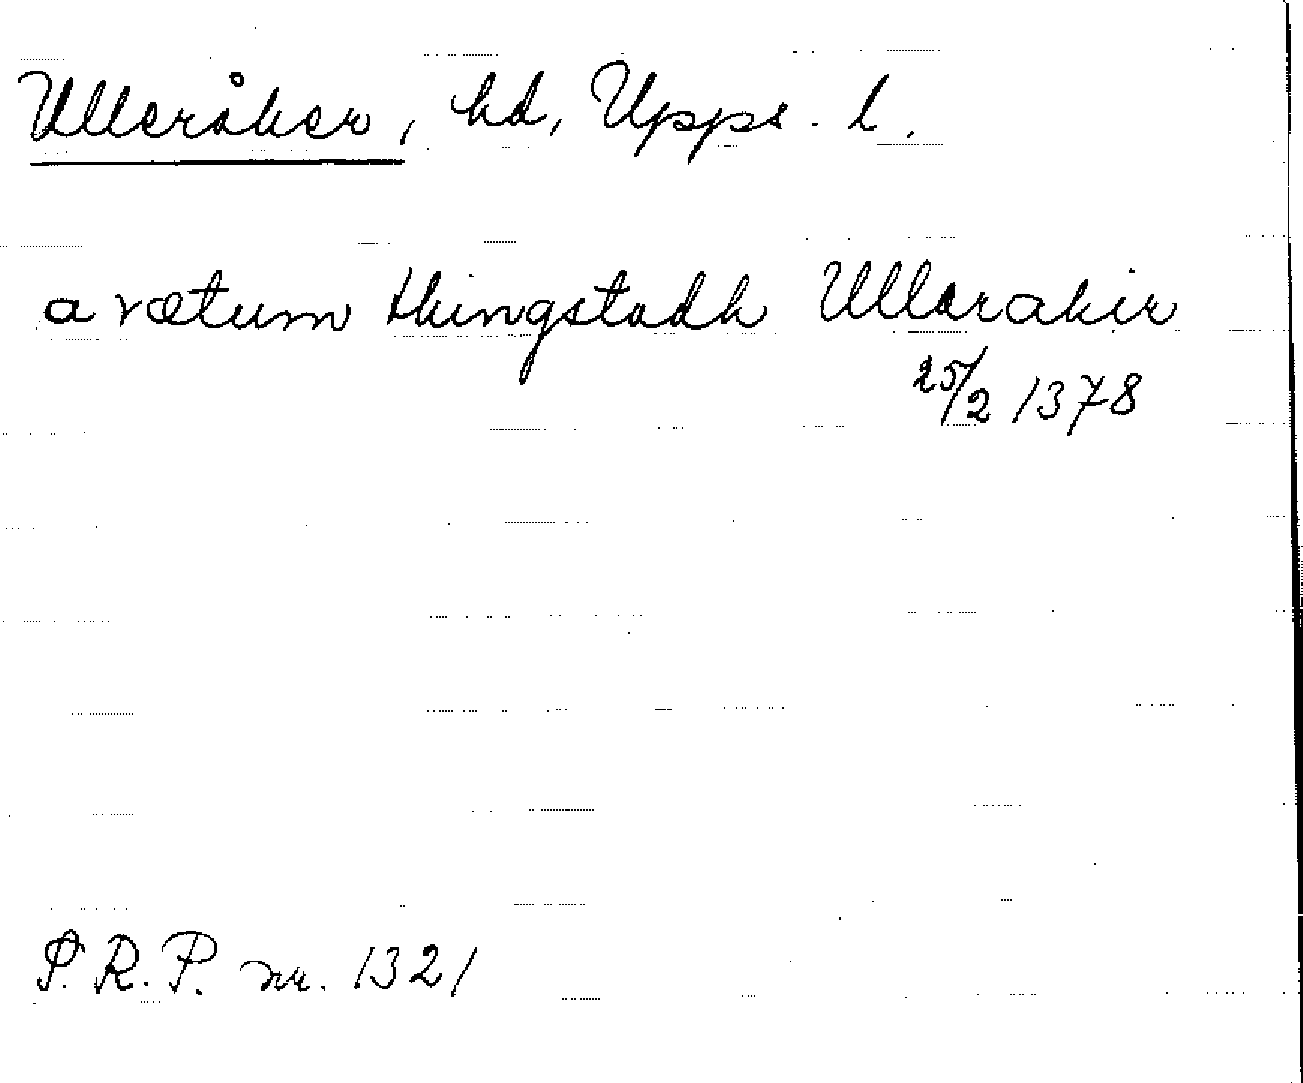 Ulleråker, hd, Upps. l.
a rætum thingstadh Ullarakir
25/2 1378
S.R.P. nr. 1321